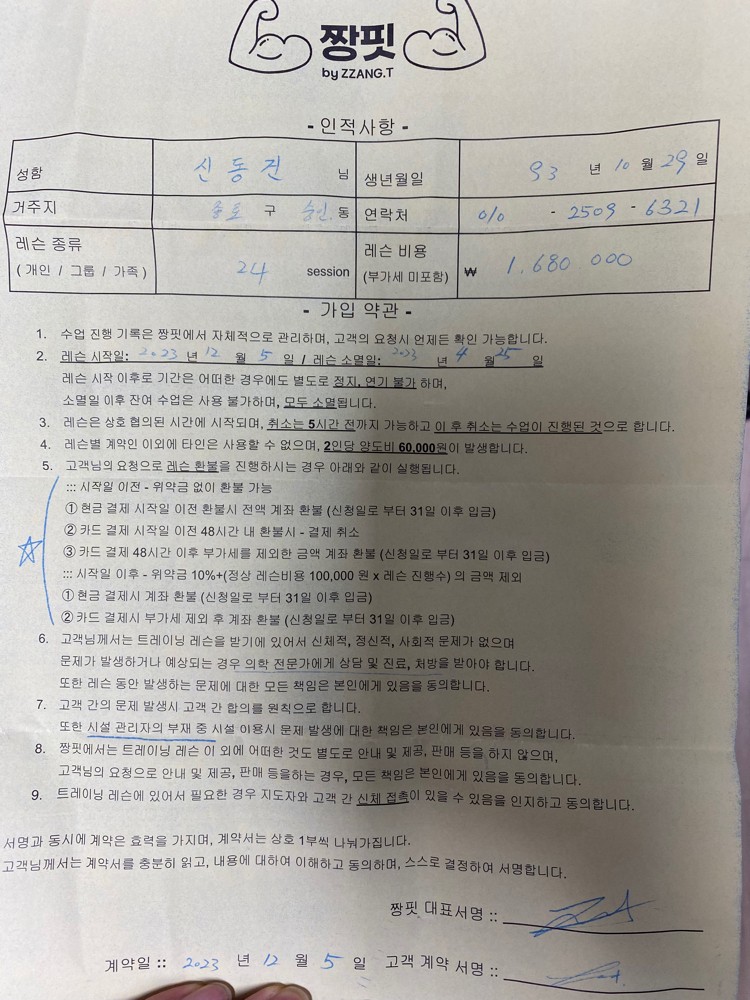 짱핏
by ZZANG.T
- 인적사항 -
성함 신동진 님 생년월일 93 년 10 월 29 일
거주지 종로 구 숭인 동 연락처 010 - 2509 - 6321
레슨 종류 레슨 비용
(개인 / 그룹 / 가족) 24 session (부가세 미포함) ₩ 1,680 000
- 가입 약관 -
1. 수업 진행 기록은 짱핏에서 자체적으로 관리하며, 고객의 요청시 언제든 확인 가능합니다.
2. 레슨 시작일: 2023 년 12 월 5 일 / 레슨 소멸일: 2023 년 4 월 25 일
레슨 시작 이후로 기간은 어떠한 경우에도 별도로 정지, 연기 불가 하며,
소멸일 이후 잔여 수업은 사용 불가하며, 모두 소멸됩니다.
3. 레슨은 상호 협의된 시간에 시작되며, 취소는 5시간 전까지 가능하고 이 후 취소는 수업이 진행된 것으로 합니다.
4. 레슨별 계약인 이외에 타인은 사용할 수 없으며, 2인당 양도비 60,000원이 발생합니다.
5. 고객님의 요청으로 레슨 환불을 진행하시는 경우 아래와 같이 실행됩니다.
::: 시작일 이전 - 위약금 없이 환불 가능
① 현금 결제 시작일 이전 환불시 전액 계좌 환불 (신청일로 부터 31일 이후 입금)
② 카드 결제 시작일 이전 48시간 내 환불시 - 결제 취소
③ 카드 결제 48시간 이후 부가세를 제외한 금액 계좌 환불 (신청일로 부터 31일 이후 입금)
::: 시작일 이후 - 위약금 10%+(정상 레슨비용 100,000 원 x 레슨 진행수) 의 금액 제외
① 현금 결제시 계좌 환불 (신청일로 부터 31일 이후 입금)
② 카드 결제시 부가세 제외 후 계좌 환불 (신청일로 부터 31일 이후 입금)
6. 고객님께서는 트레이닝 레슨을 받기에 있어서 신체적, 정신적, 사회적 문제가 없으며
문제가 발생하거나 예상되는 경우 의학 전문가에게 상담 및 진료, 처방을 받아야 합니다.
또한 레슨 동안 발생하는 문제에 대한 모든 책임은 본인에게 있음을 동의합니다.
7. 고객 간의 문제 발생시 고객 간 합의를 원칙으로 합니다.
또한 시설 관리자의 부재 중 시설 이용시 문제 발생에 대한 책임은 본인에게 있음을 동의합니다.
8. 짱핏에서는 트레이닝 레슨 이 외에 어떠한 것도 별도로 안내 및 제공, 판매 등을 하지 않으며,
고객님의 요청으로 안내 및 제공, 판매 등을하는 경우, 모든 책임은 본인에게 있음을 동의합니다.
9. 트레이닝 레슨에 있어서 필요한 경우 지도자와 고객 간 신체 접촉이 있을 수 있음을 인지하고 동의합니다.
서명과 동시에 계약은 효력을 가지며, 계약서는 상호 1부씩 나눠가집니다.
고객님께서는 계약서를 충분히 읽고, 내용에 대하여 이해하고 동의하며, 스스로 결정하여 서명합니다.
짱핏 대표서명 ::
계약일 :: 2023 년 12 월 5 일 고객 계약 서명 ::